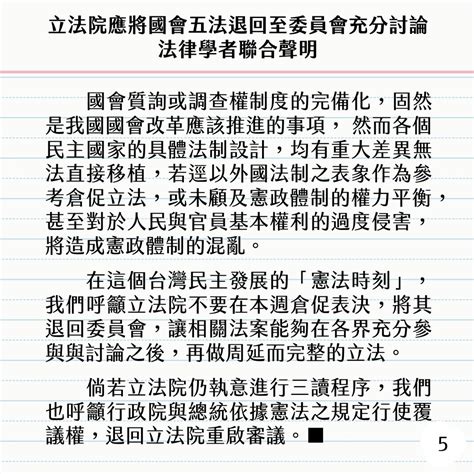 立法院應將國會五法退回至委員會充分討論
法律學者聯合聲明
國會質詢或調查權制度的完備化，固然
是我國國會改革應該推進的事項， 然而各個
民主國家的具體法制設計，均有重大差異無
法直接移植，若逕以外國法制之表象作為參
考倉促立法，或未顧及憲政體制的權力平衡，
甚至對於人民與官員基本權利的過度侵害，
將造成憲政體制的混亂。
在這個台灣民主發展的「憲法時刻」，
我們呼籲立法院不要在本週倉促表決，將其
退回委員會，讓相關法案能夠在各界充分參
與與討論之後，再做周延而完整的立法。
倘若立法院仍執意進行三讀程序，我們
也呼籲行政院與總統依據憲法之規定行使覆
議權，退回立法院重啟審議。■
5